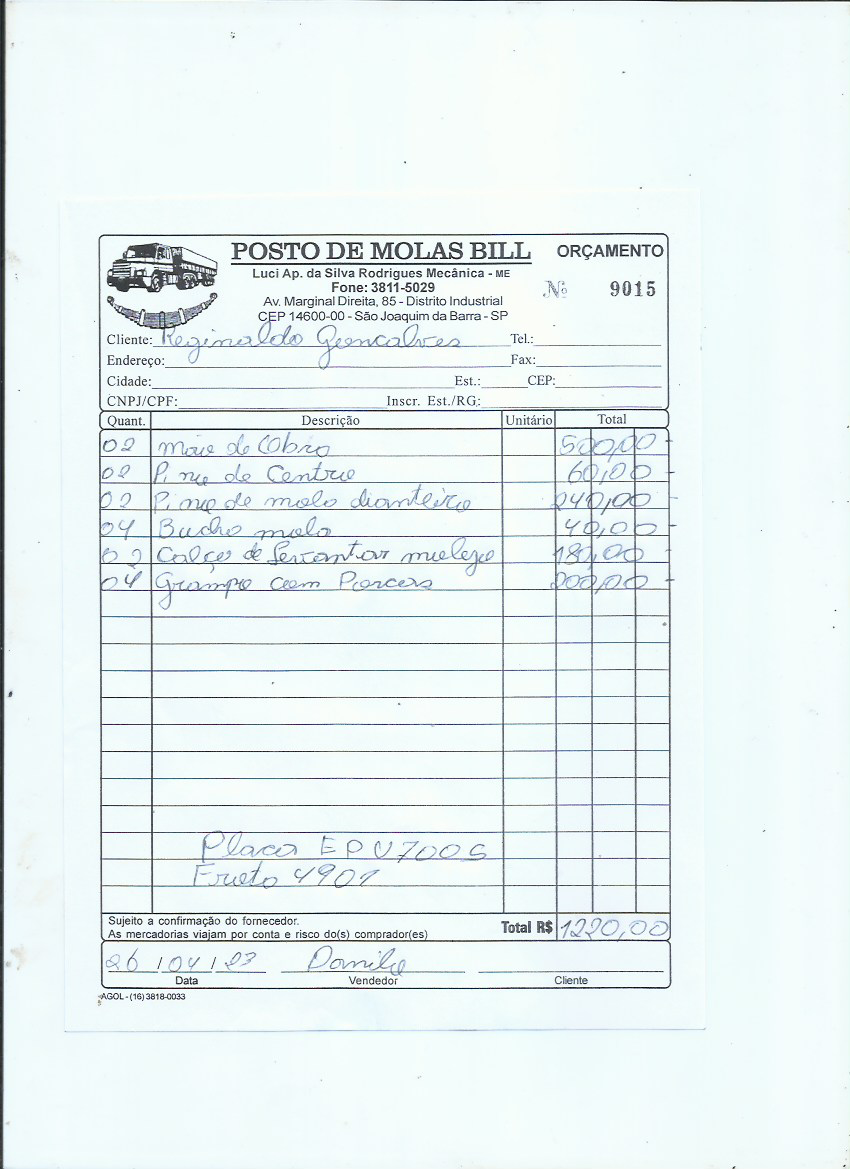 POSTO DE MOLAS BILL ORÇAMENTO
Luci Ap. da Silva Rodrigues Mecânica - ME
Fone: 3811-5029
Nº 9015
Av. Marginal Direita, 85 - Distrito Industrial
CEP 14600-00 - São Joaquim da Barra - SP
Cliente: Reginaldo Goncalves Tel.:
Endereço: Fax:
Cidade: Est.: CEP:
CNPJ/CPF: Inscr. Est./RG:
Quant. Descrição Unitário Total
02 Mão de Obra 500,00
02 Pino de Centro 60,00
02 Pino de mola dianteiro 240,00
04 Bucha mola 40,00
02 Calço de Levantar molejo 180,00
04 Grampo com Porcas 200,00
Placa EPU7005
Frota 4901
Sujeito a confirmação do fornecedor.
As mercadorias viajam por conta e risco do(s) comprador(es)
Total R$ 1220,00
26/04/23 Danilo
Data Vendedor Cliente
AGOL - (16) 3818-0033